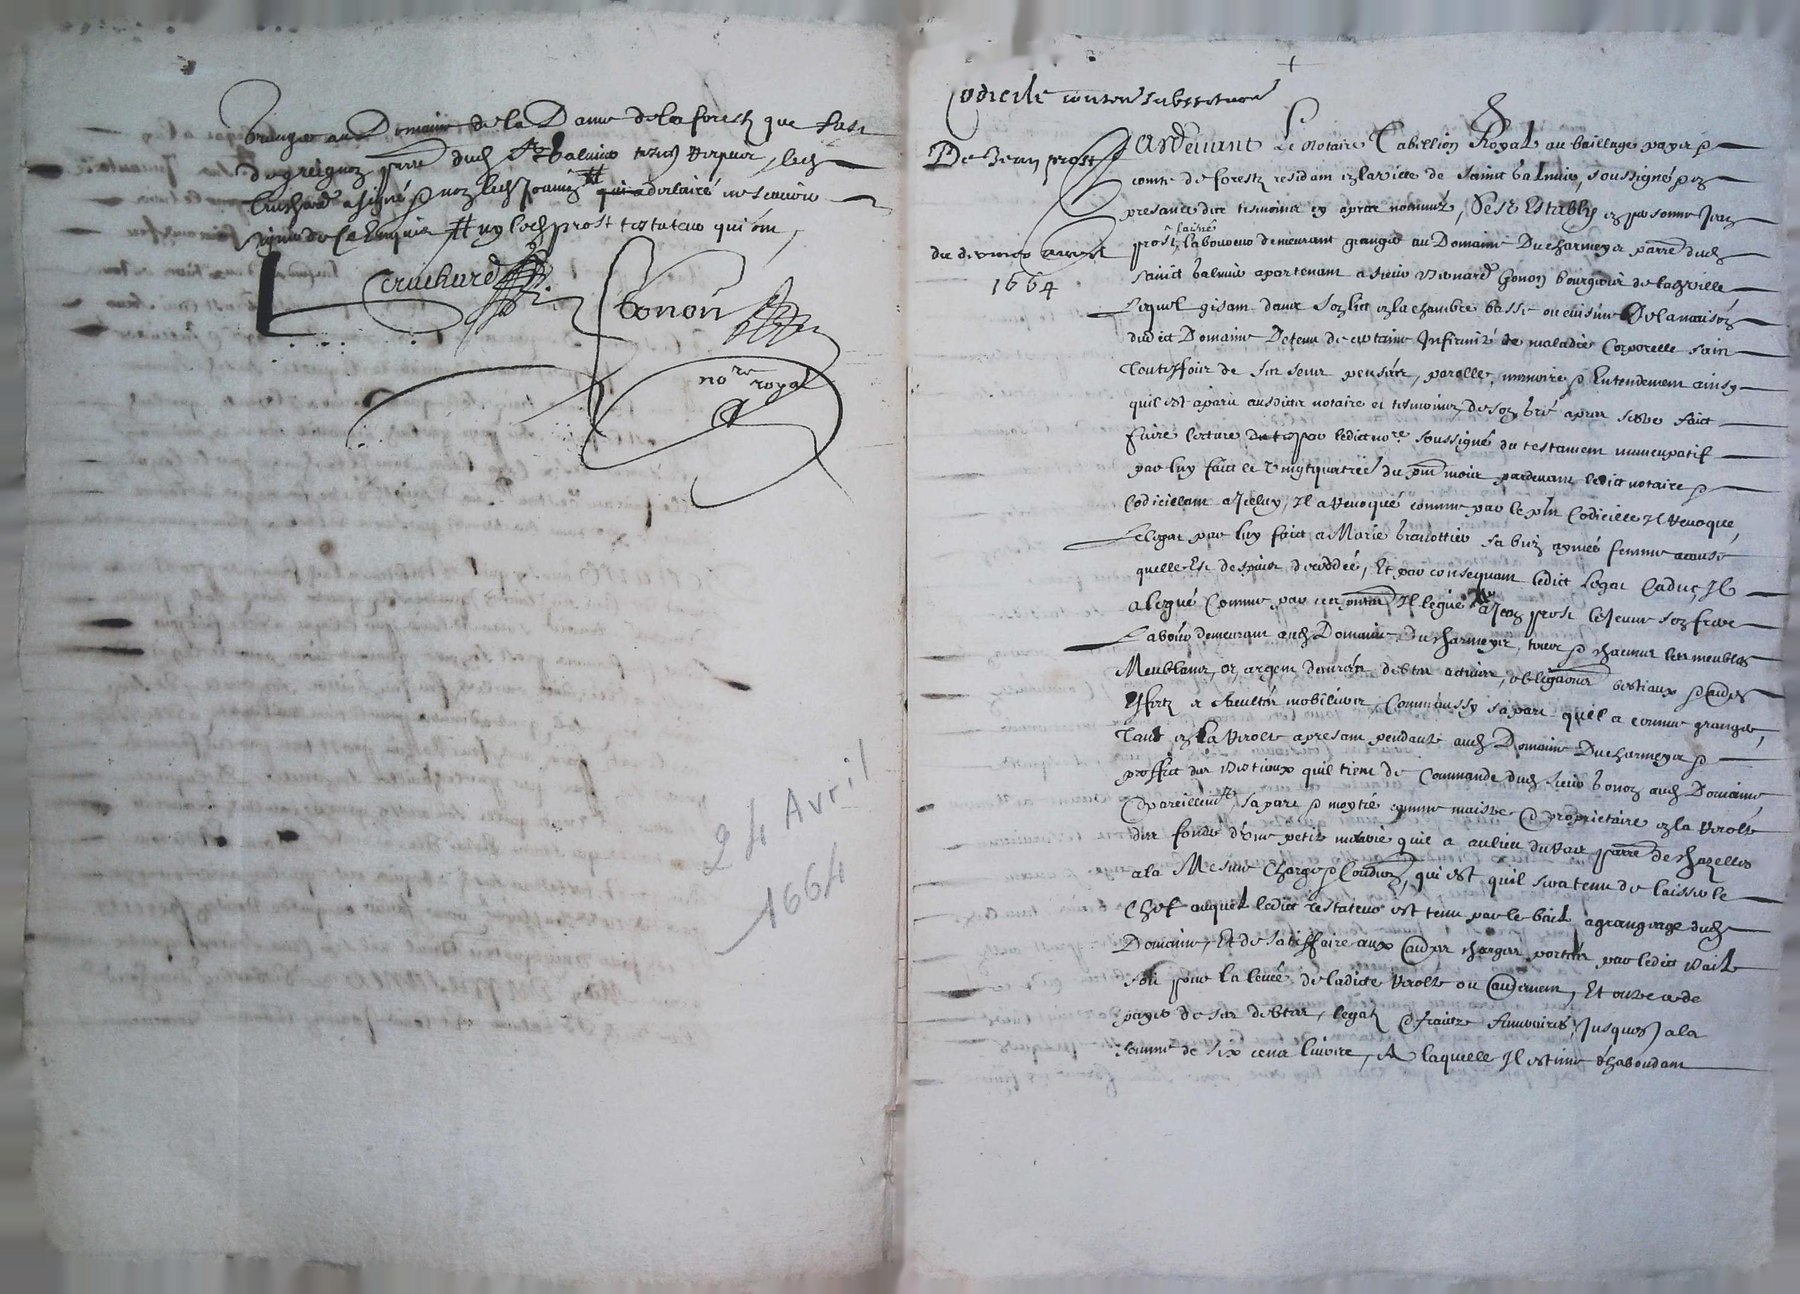 grangier au Domaine de la Dame de la forestz que
de greignoz parre dud St Galmier tesmoings requis, led
Cruchard a signé & non led Joannez
signer de ce Enquis # ny led prost testateur qui ont
Cruchard
Gonon
no.re royal
24 Avril
1664
Codicile contenant substitution
De Jean prost
du dernier avril
1664
Pardevant Le Notaire Tabellion Royal au bailliage pays &
comté de forestz residant en la ville de Sainct Galmier, soussigné & en
presance des tesmoins cy apres nommez, S'est Establi en personne Jean
prost, laisné laboureur demeurant granger au Domaine Du charmeyer parre dud
Sainct Galmier apartenant a sieur Bernard Gonon bourgeois de lad ville
Lequel gisant dans son lict en la chambre basse ou cuisine De la maison
dudict Domaine Detenu de certaine Infirmité de maladie Corporelle sain
Toutesfois de ses sens pensées, parolle, memoire & Entendement ainsy
quil est aparu ausdicts notaire et tesmoins, de son gré apres s'estre faict
faire lecture par ledict no.re soussigné du testament nuncupatif
par luy faict le Vingtquatre du pnt mois pardevant ledict notaire &
Codicillant a Icelluy, Il a revoqué comme par le pnt Codicille Il revoque
Le legat par luy faict a Marie sa bien aymée femme a cause
quelle Est despuis decedée, Et par consequant ledict legat Caduc, Il
a legué Comme par ces pntes Il legue a Jean prost le Jeune son frere
Laboureur demeurant aud Domaine Du charmeyer, tous & chacuns les meubles
Meublans, or, argent denrées debtes actives, obligations bestiaux & autres
Effectz & facultés mobiliaires, Comm'aussy sa part quil a comme granger
Tant en la recolte apresant pendante aud Domaine Du charmeyer &
proffict des bestiaux quil tient de Commande dud sieur Gonon aud Domaine
Pareillemt sa part & moytié comme maistre & proprietaire en la recolte
des fonds d'une petite quil a au lieu du parre de Chazelles
a la Mesme Charge & Condition, qui est quil sera tenu de laisser le
Chef auquel ledict testateur est tenu par le bail a grangeage dud
Domaine, Et de satisfaire aux Causes charges portées par ledict bail
soit pour la levée de ladicte recolte ou aultrement, Et outre ce de
payer de ses debtes, legatz & fraictz funeraires, Jusques a la
somme de six cens livres, A laquelle Il estime